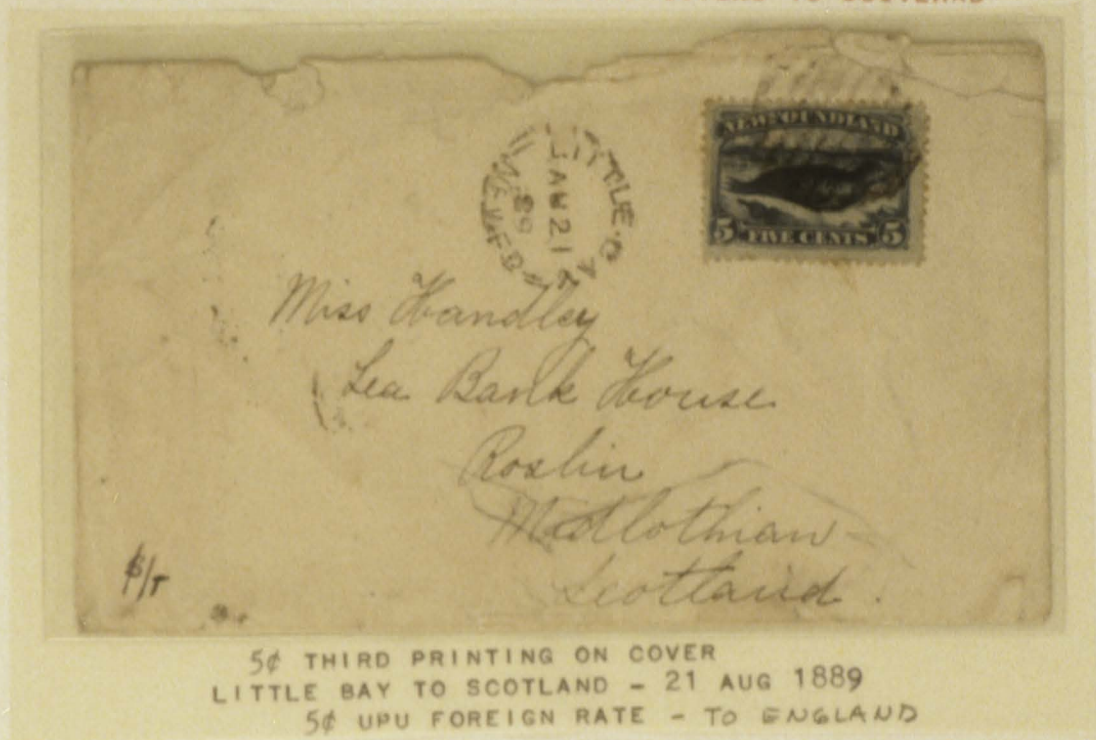 TO SCOTLAND
NEWFOUNDLAND
5 FIVE CENTS 5
LITTLE BAY
21
89
NEWFD
Miss Handley
Sea Bank House
Roslin
Midlothian
Scotland.
5¢ THIRD PRINTING ON COVER
LITTLE BAY TO SCOTLAND - 21 AUG 1889
5¢ UPU FOREIGN RATE - TO ENGLAND